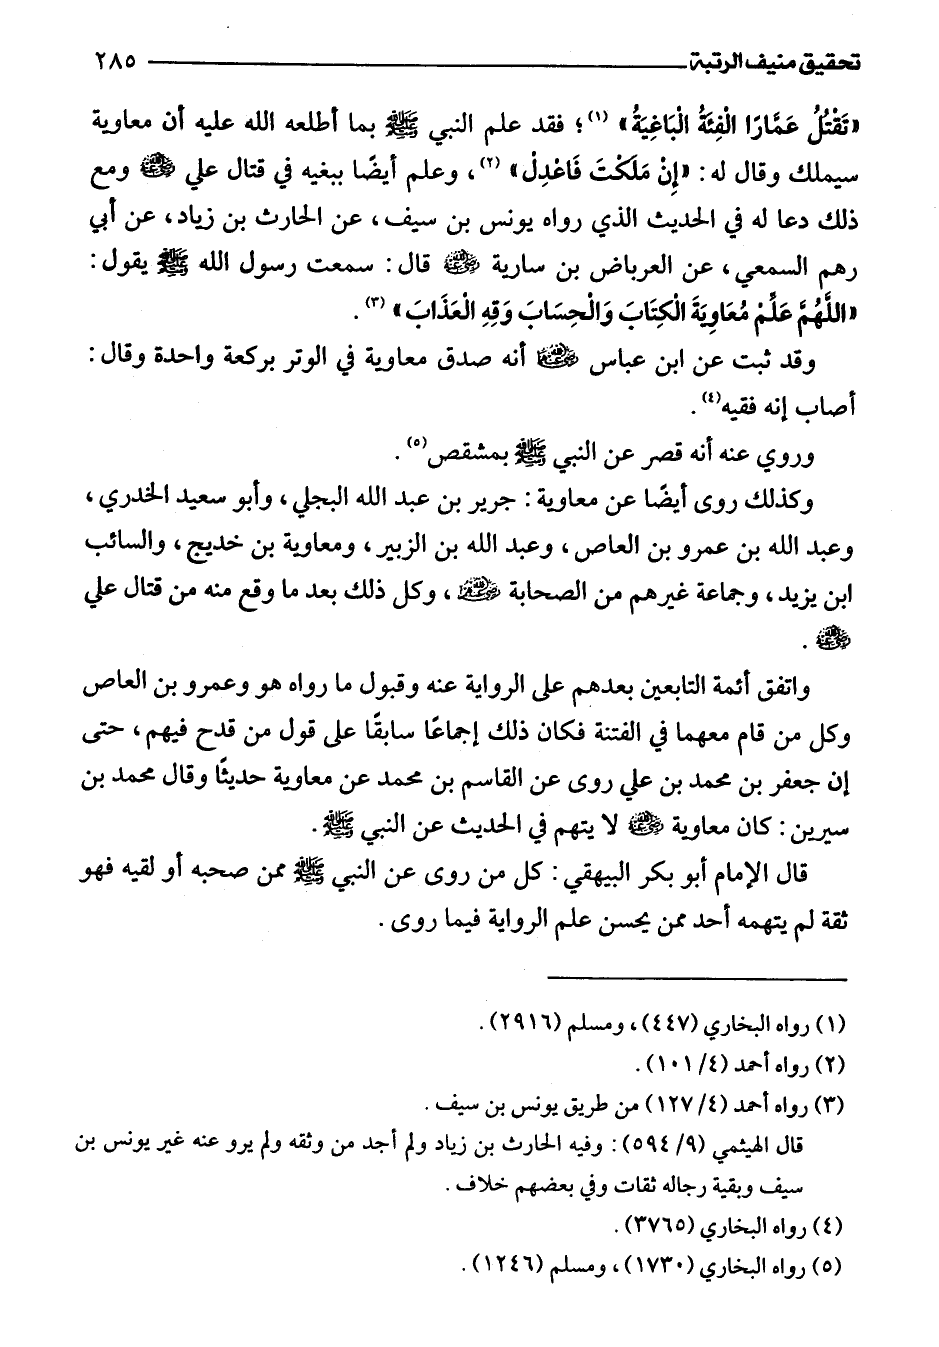 تحقيق منيف الرتبة ٢٨٥
«تَقْتُلُ عَمَّارًا الْفِئَةُ الْبَاغِيَةُ» (١)؛ فقد علم النبي ﷺ بما أطلعه الله عليه أن معاوية
سيملك وقال له: «إِنْ مَلَكْتَ فَاعْدِلْ» (٢)، وعلم أيضًا ببغيه في قتال علي رضي الله عنه ومع
ذلك دعا له في الحديث الذي رواه يونس بن سيف، عن الحارث بن زياد، عن أبي
رهم السمعي، عن العرباض بن سارية رضي الله عنه قال: سمعت رسول الله ﷺ يقول:
«اللَّهُمَّ عَلِّمْ مُعَاوِيَةَ الْكِتَابَ وَالْحِسَابَ وَقِهِ الْعَذَابَ» (٣).
وقد ثبت عن ابن عباس رضي الله عنه أنه صدق معاوية في الوتر بركعة واحدة وقال:
أصاب إنه فقيه(٤).
وروي عنه أنه قصر عن النبي ﷺ بمشقص(٥).
وكذلك روى أيضًا عن معاوية: جرير بن عبد الله البجلي، وأبو سعيد الخدري،
وعبد الله بن عمرو بن العاص، وعبد الله بن الزبير، ومعاوية بن خديج، والسائب
ابن يزيد، وجماعة غيرهم من الصحابة رضي الله عنهم، وكل ذلك بعد ما وقع منه من قتال علي
رضي الله عنه.
واتفق أئمة التابعين بعدهم على الرواية عنه وقبول ما رواه هو وعمرو بن العاص
وكل من قام معهما في الفتنة فكان ذلك إجماعًا سابقًا على قول من قدح فيهم، حتى
إن جعفر بن محمد بن علي روى عن القاسم بن محمد عن معاوية حديثًا وقال محمد بن
سيرين: كان معاوية رضي الله عنه لا يتهم في الحديث عن النبي ﷺ.
قال الإمام أبو بكر البيهقي: كل من روى عن النبي ﷺ ممن صحبه أو لقيه فهو
ثقة لم يتهمه أحد ممن يحسن علم الرواية فيما روى.
(١) رواه البخاري (٤٤٧)، ومسلم (٢٩١٦).
(٢) رواه أحمد (٤/ ١٠١).
(٣) رواه أحمد (٤/ ١٢٧) من طريق يونس بن سيف.
قال الهيثمي (٩/ ٥٩٤): وفيه الحارث بن زياد ولم أجد من وثقه ولم يرو عنه غير يونس بن
سيف وبقية رجاله ثقات وفي بعضهم خلاف.
(٤) رواه البخاري (٣٧٦٥).
(٥) رواه البخاري (١٧٣٠)، ومسلم (١٢٤٦).